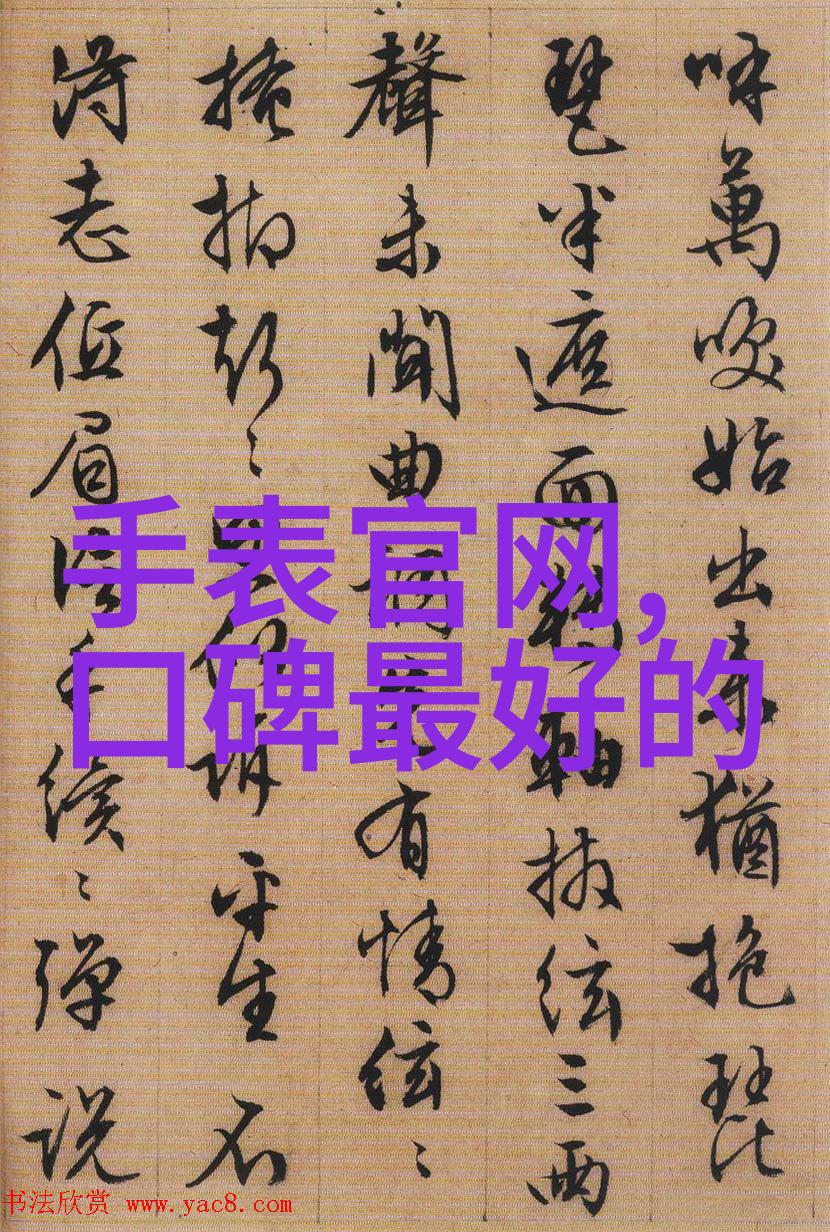 呼萬喚始出来猶抱琵
琶半遮面轉軸撥絃三兩
聲未聞曲調先有情絃〻
掩抑声〻思似訴平生不
得志低眉信手續〻彈説
手表官网,
口碑最好的
书法欣赏 www.yac8.com